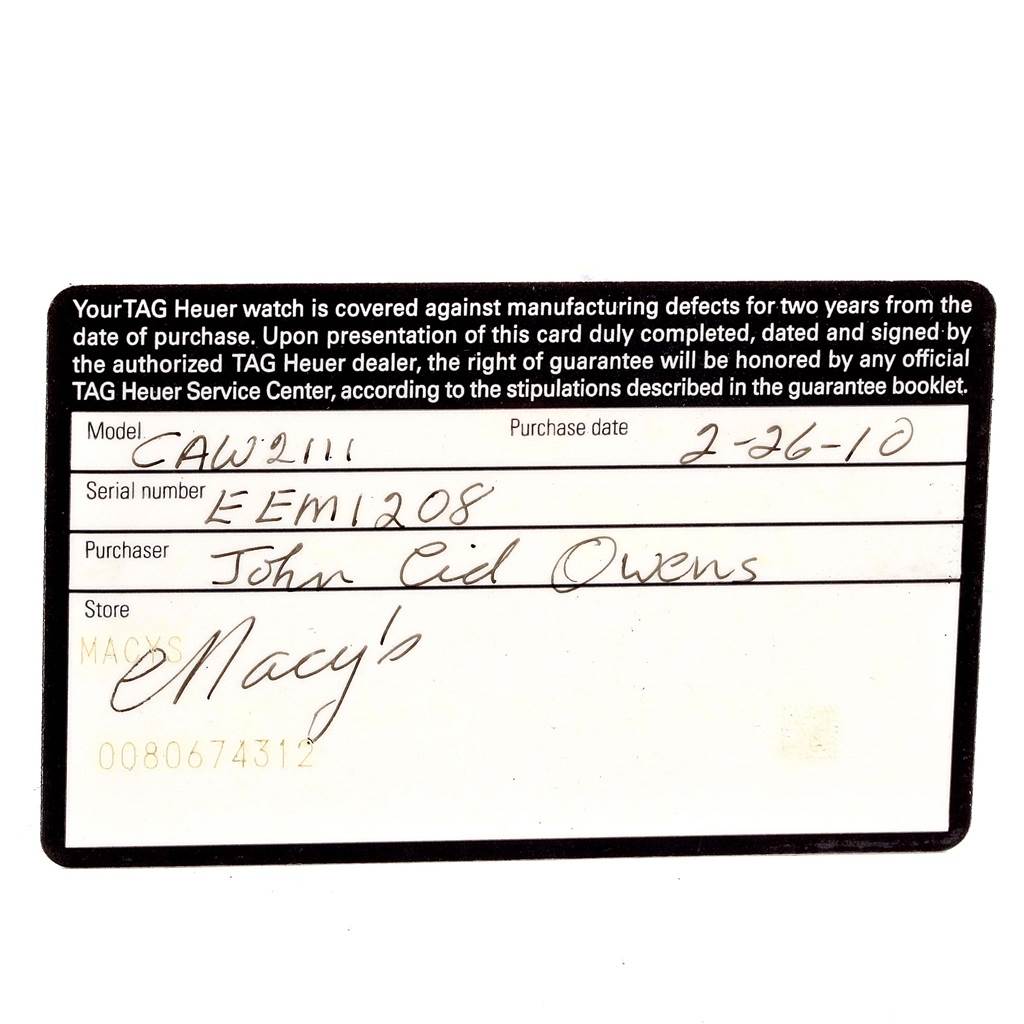 Your TAG Heuer watch is covered against manufacturing defects for two years from the
date of purchase. Upon presentation of this card duly completed, dated and signed by
the authorized TAG Heuer dealer, the right of guarantee will be honored by any official
TAG Heuer Service Center, according to the stipulations described in the guarantee booklet.
Model CAW2111 Purchase date 2-26-10
Serial number EEM1208
Purchaser John Cid Owens
Store
MACYS
Macy's
0080674312